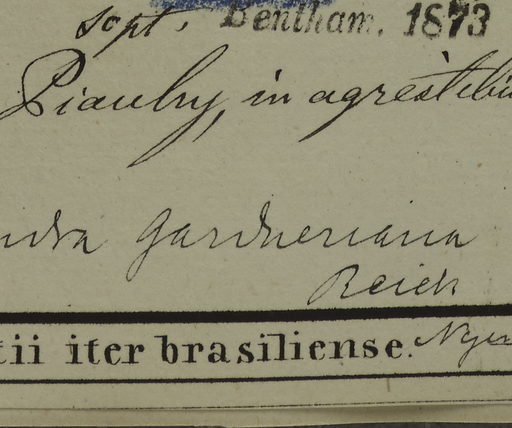 Sept. Bentham. 1873
Piauhy, in agrestibu
ndra Gardneriana
Reich
tii iter brasiliense.